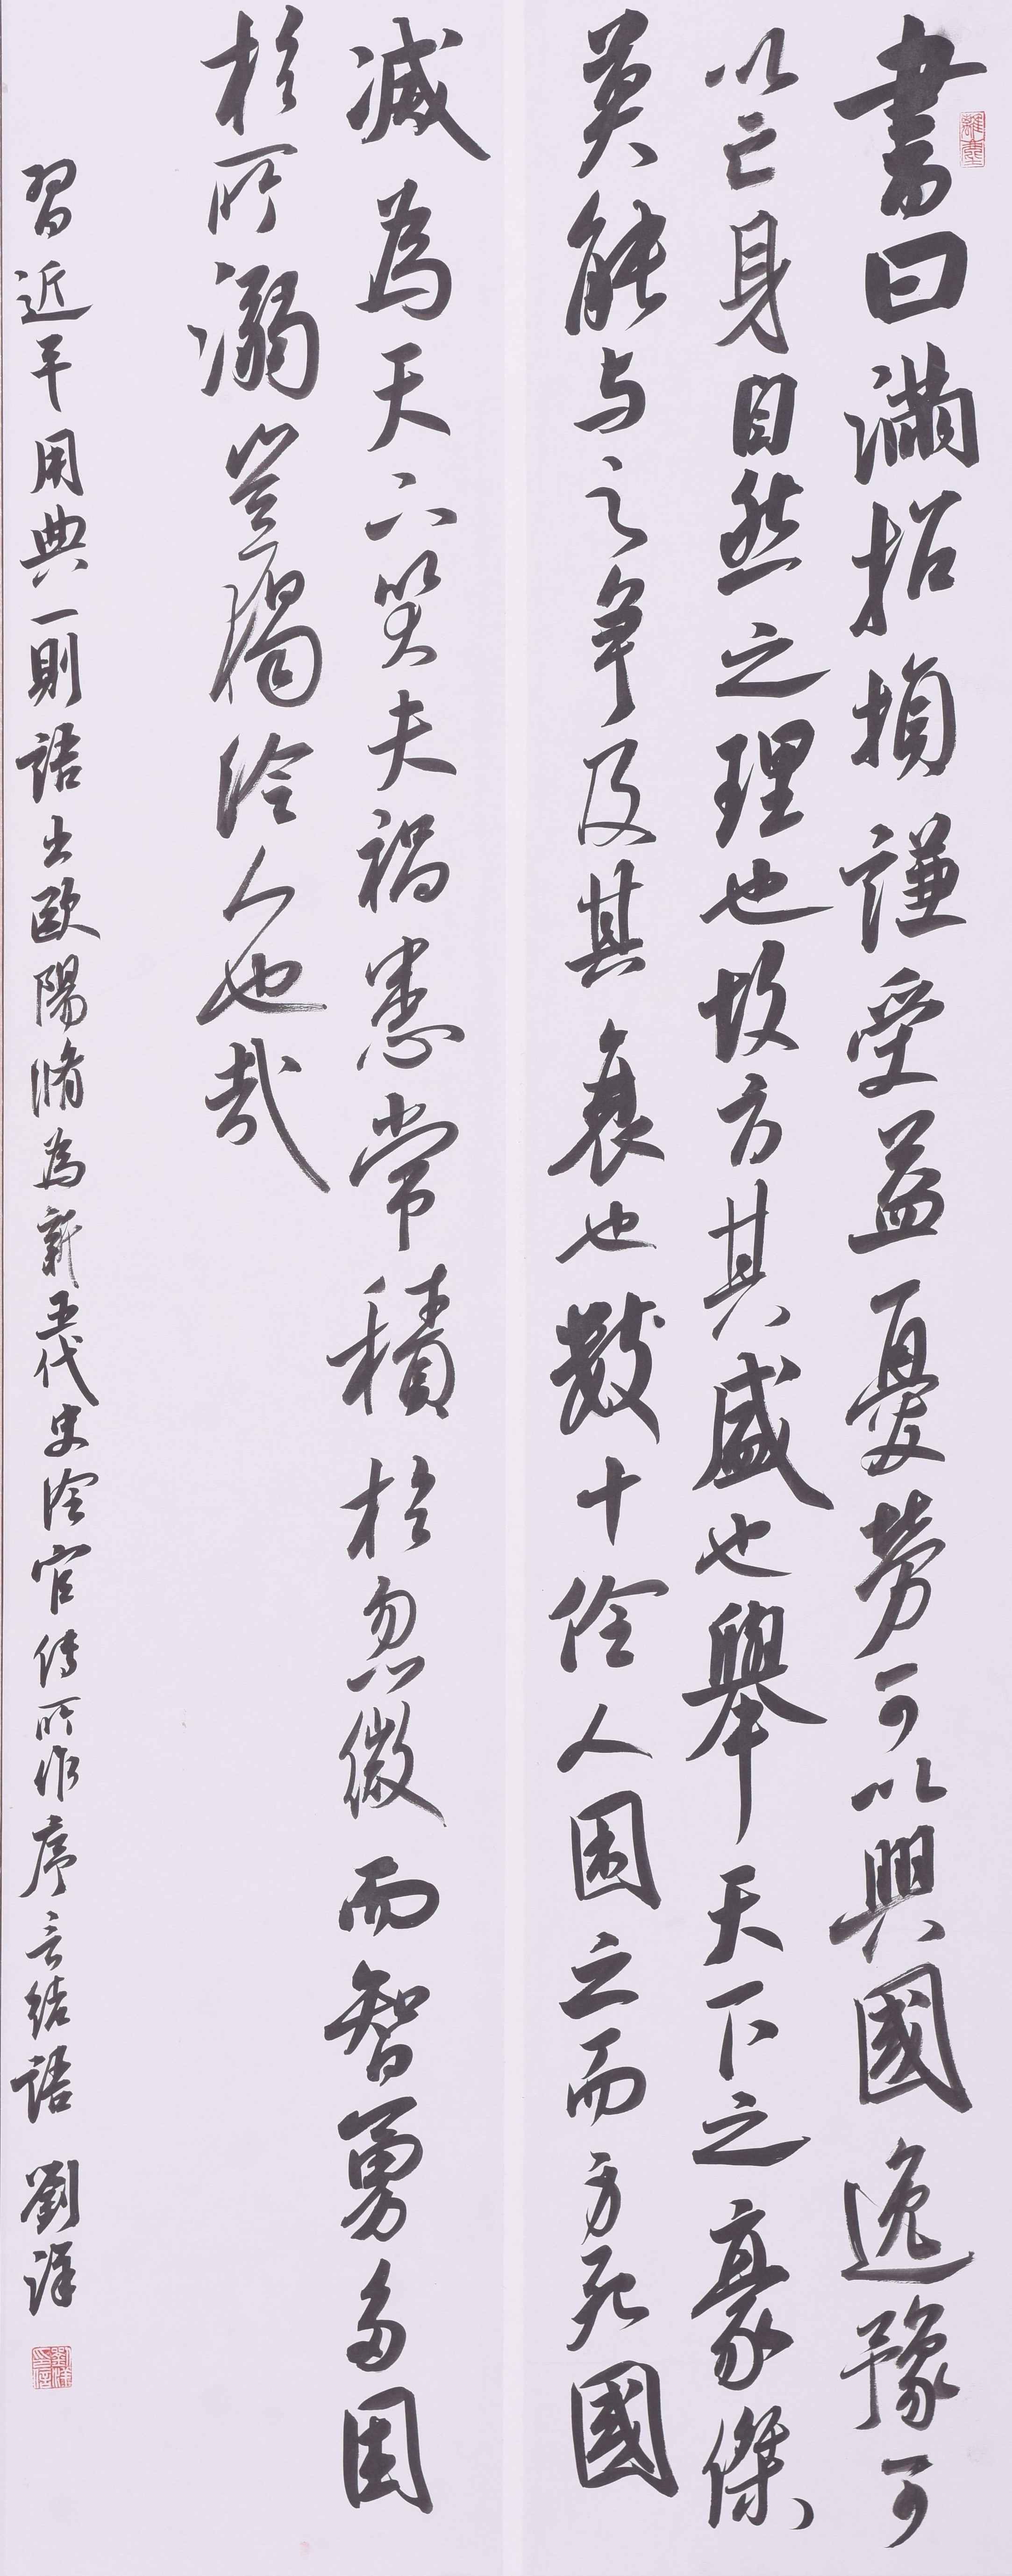 書曰滿招損謙受益憂勞可以興國逸豫可
以亡身自然之理也故方其盛也舉天下之豪傑
莫能与之争及其衰也數十伶人困之而身死國
滅為天下笑夫禍患常積於忽微而智勇多困
於所溺豈獨伶人也哉
習近平用典一則語出歐陽脩為新五代史伶官傳所作序言結語 劉洋